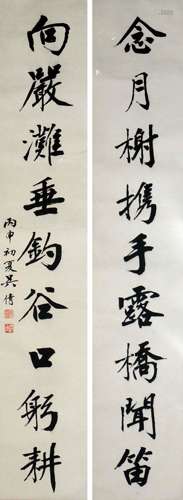 念月榭攜手露橋聞笛
向嚴灘垂釣谷口躬耕
丙申初夏吳倩